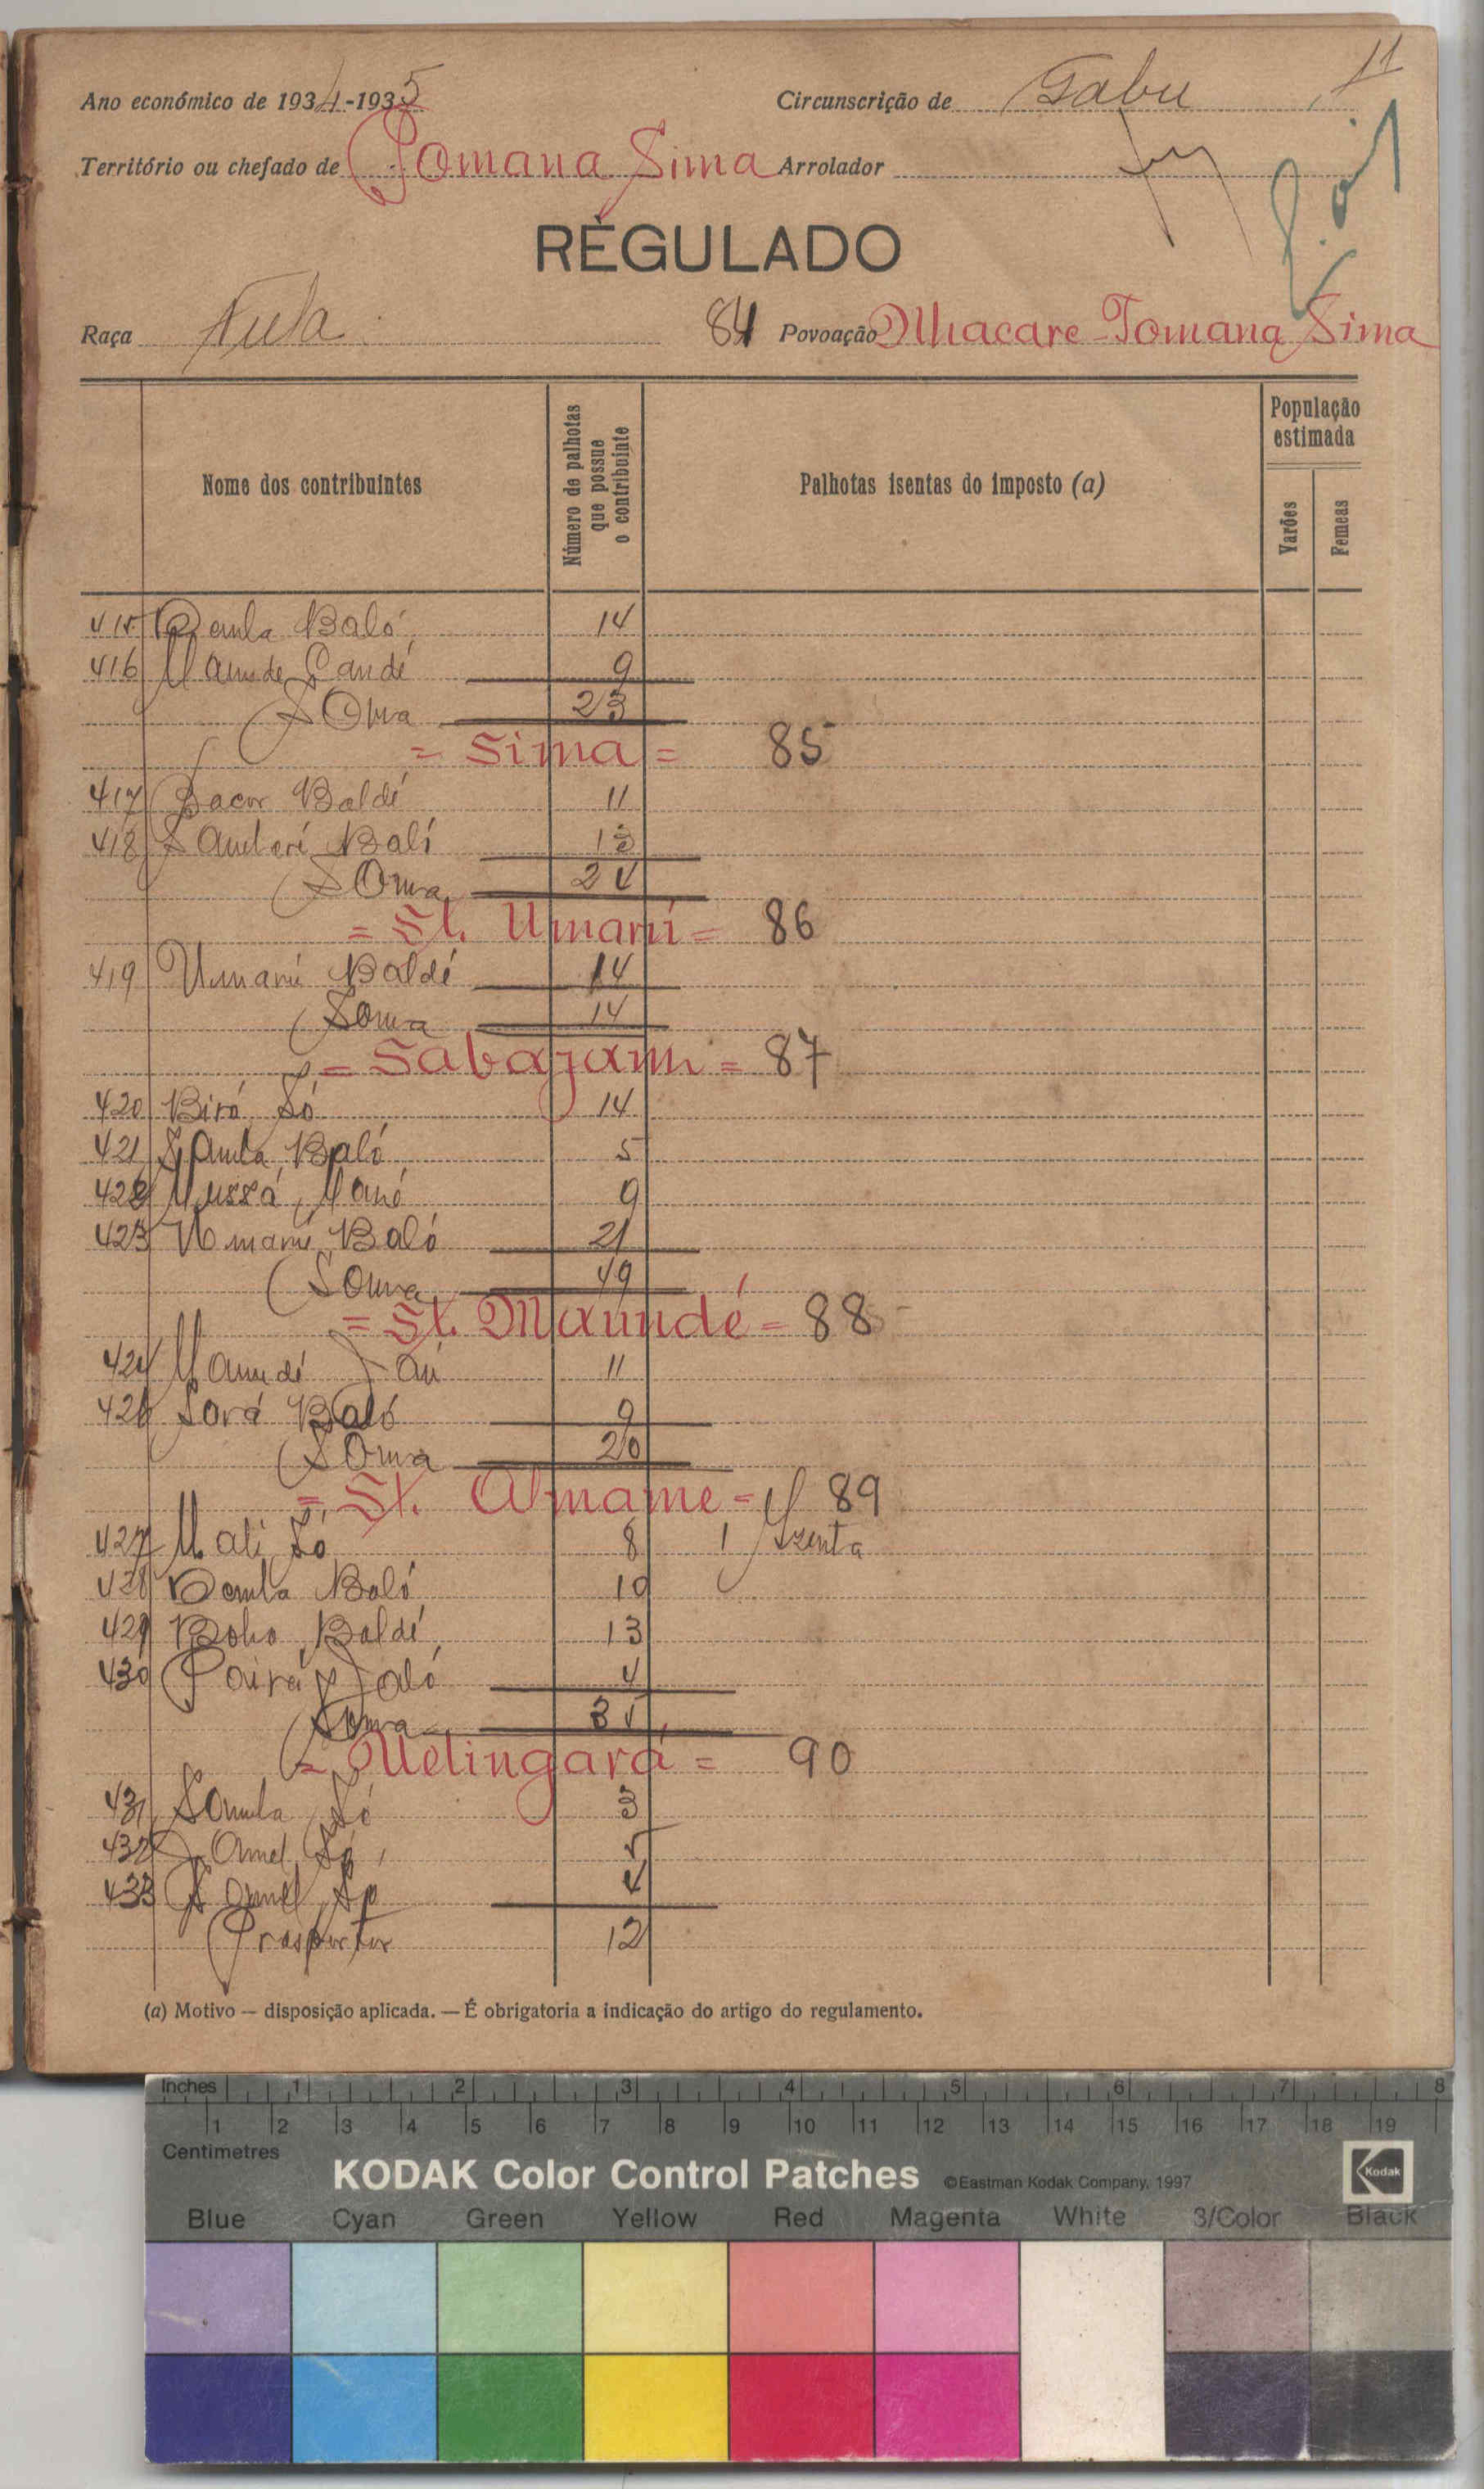 11
Ano económico de 1934-1935 Circunscrição de Gabu
Território ou chefado de Tomana Sima Arrolador
REGULADO
Raça Fula 84 Povoação Mhacare-Tomana Sima
Nome dos contribuintes
Número de palhotas que possue o contribuinte
Palhotas isentas do imposto (a)
População estimada
Varões
Femeas
415 Demba Baló 14
416 Mamude Candé 9
Soma 23
= Sima = 85
417 Bacar Baldé 11
418 Baló 13
Soma 24
= St. Umarú = 86
419 Umarú Baldé 14
Soma 14
= Sabajam = 87
420 Biró Só 14
421 Samba Baló 5
422 Mussá Mané 9
423 Umarú Baló 21
Soma 49
= St. Mamudé = 88
424 Mamudé Jau 11
426 Sará Baló 9
Soma 20
= St. Almame = 89
427 Mali Só 8 1 Isenta
428 Demba Baló 10
429 Boho Baldé 13
430 Pairá Jaló 4
Soma 35
= Uelingará = 90
431 Samba Só 3
432 Só 5
433 Só 4
Trasportar 12
(a) Motivo — disposição aplicada. — É obrigatoria a indicação do artigo do regulamento.
Inches 1 2 3 4 5 6 7 8
1 2 3 4 5 6 7 8 9 10 11 12 13 14 15 16 17 18 19
Centimetres
KODAK Color Control Patches ©Eastman Kodak Company, 1997 Kodak
Blue Cyan Green Yellow Red Magenta White 3/Color Black